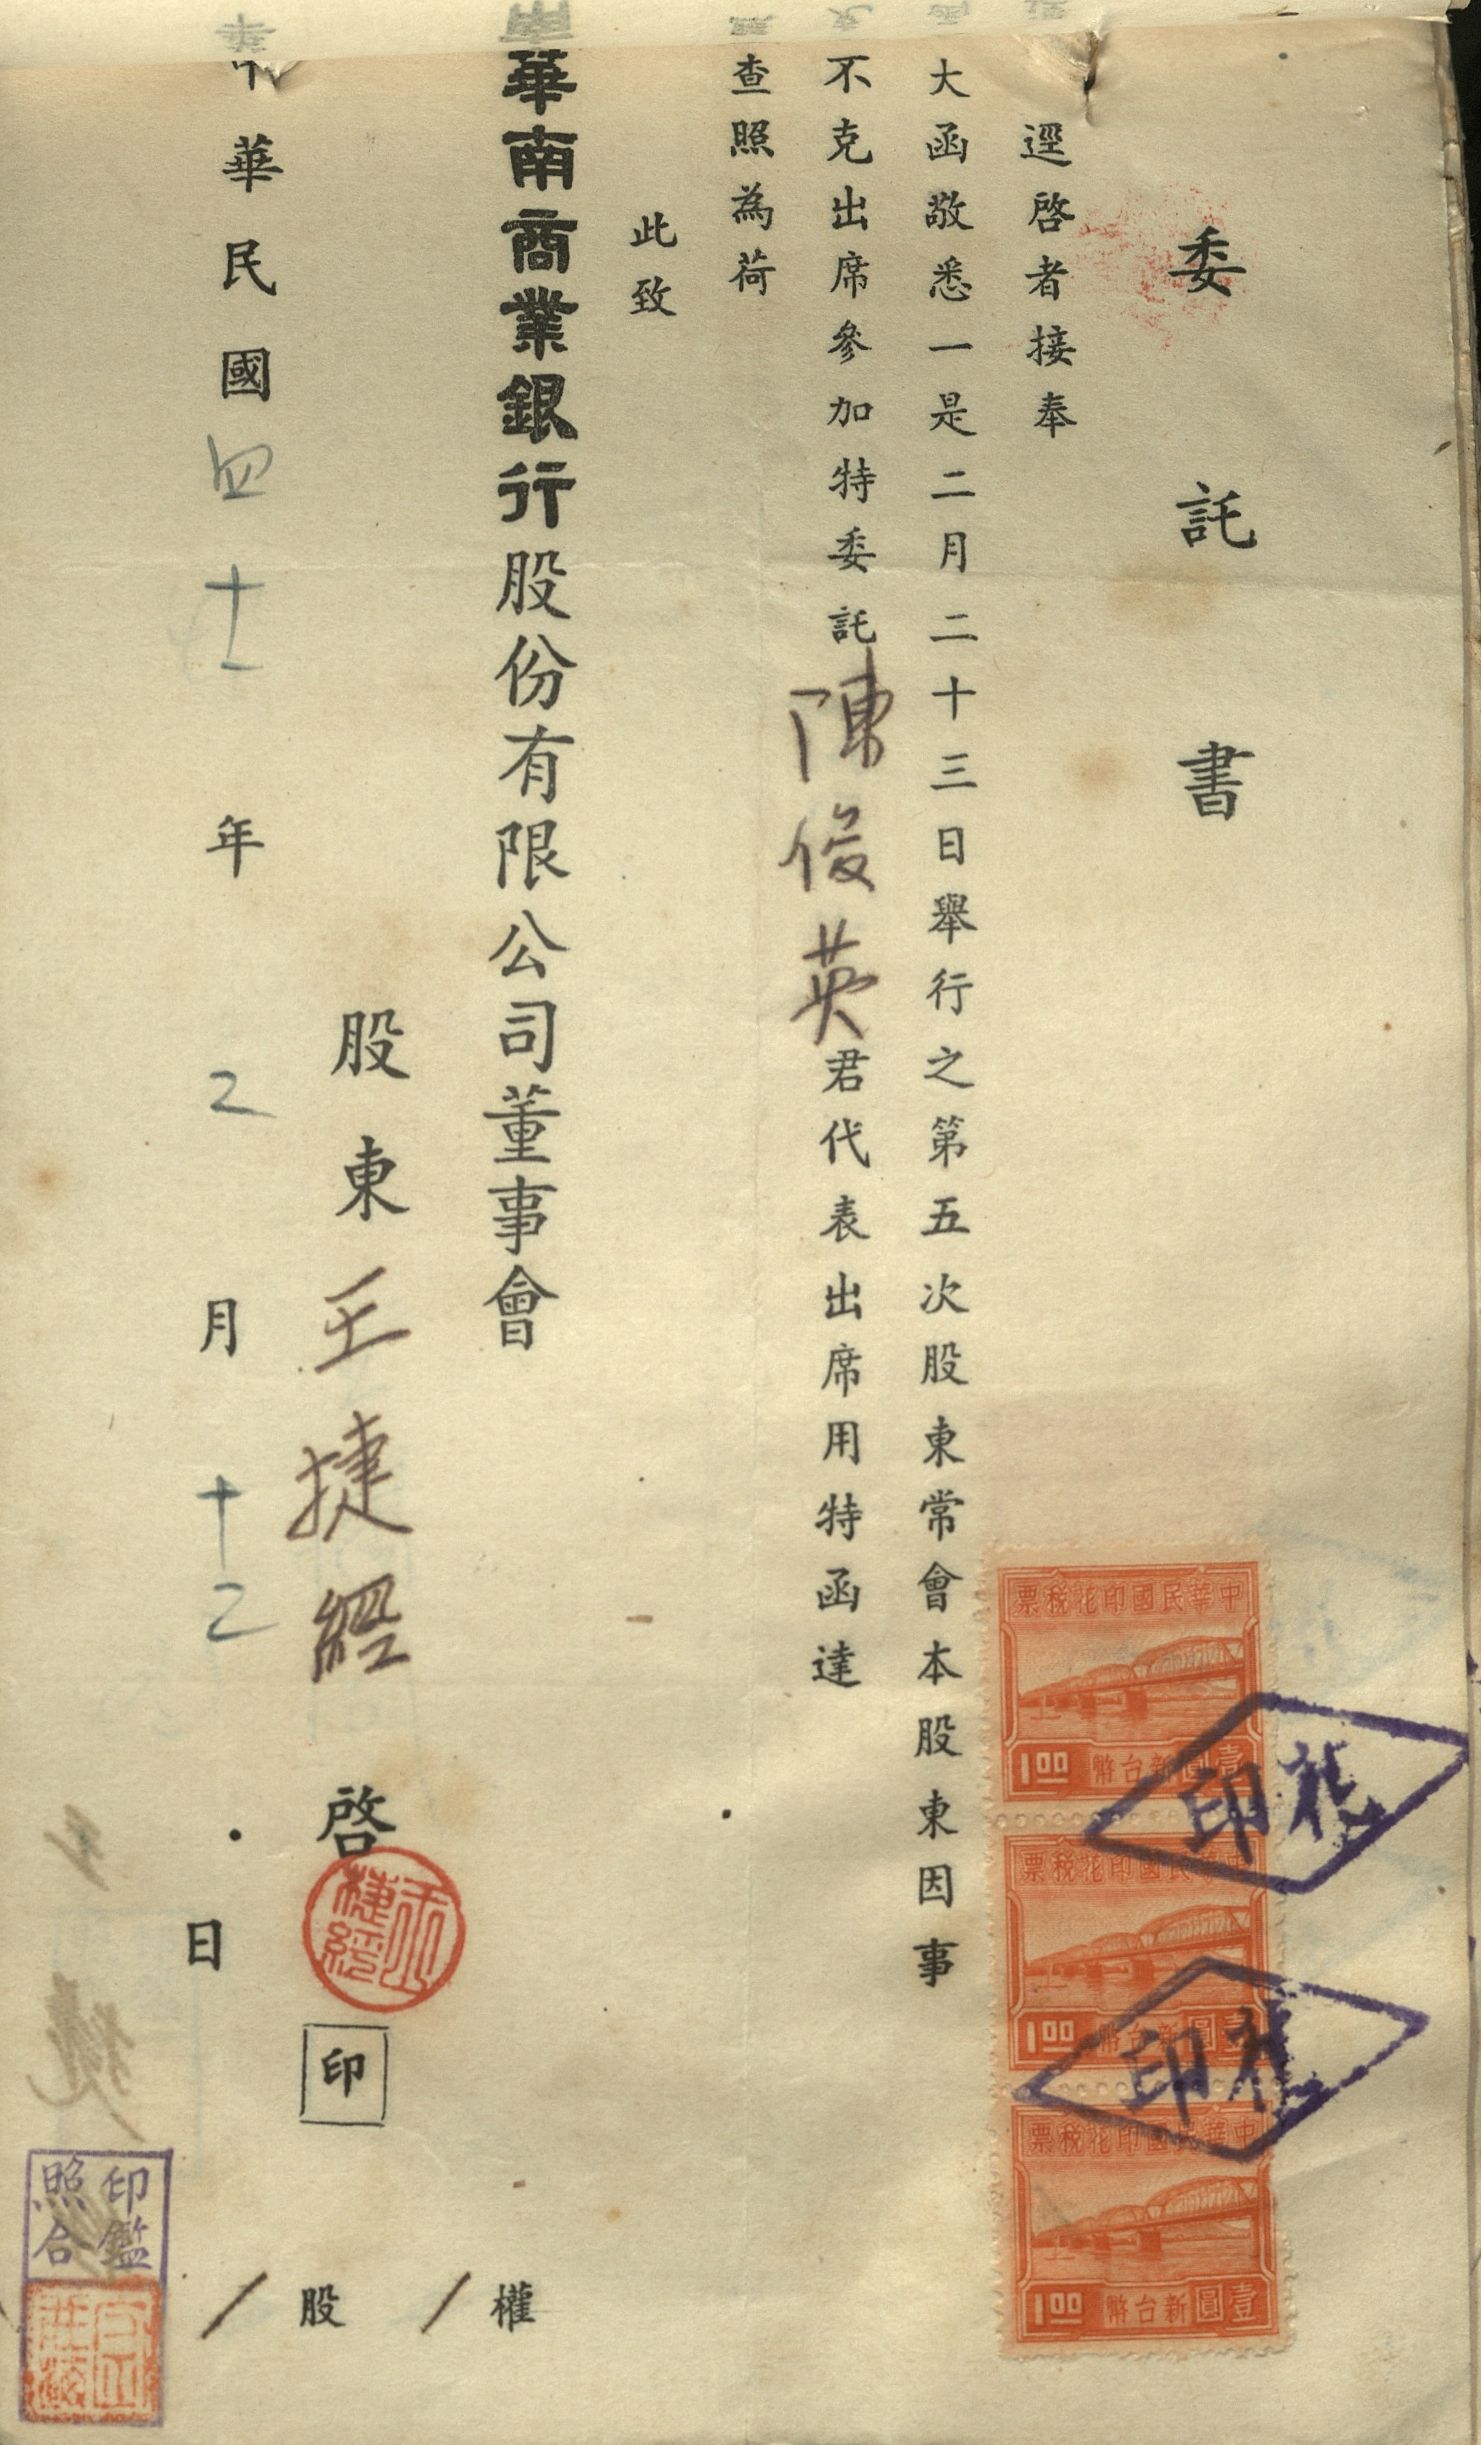 委託書
逕啓者接奉
大函敬悉一是二月二十三日舉行之第五次股東常會本股東因事
不克出席參加特委託陳俊英君代表出席用特函達
查照為荷
此致
華南商業銀行股份有限公司董事會
股東王捷經啓
王捷經
印
權
/
股
/
中華民國四十一年2月十2日
中華民國印花稅票
1.00 新台幣壹圓
中華民國印花稅票
1.00 新台幣壹圓
中華民國印花稅票
1.00 新台幣壹圓
印花
印花
印鑑
照合